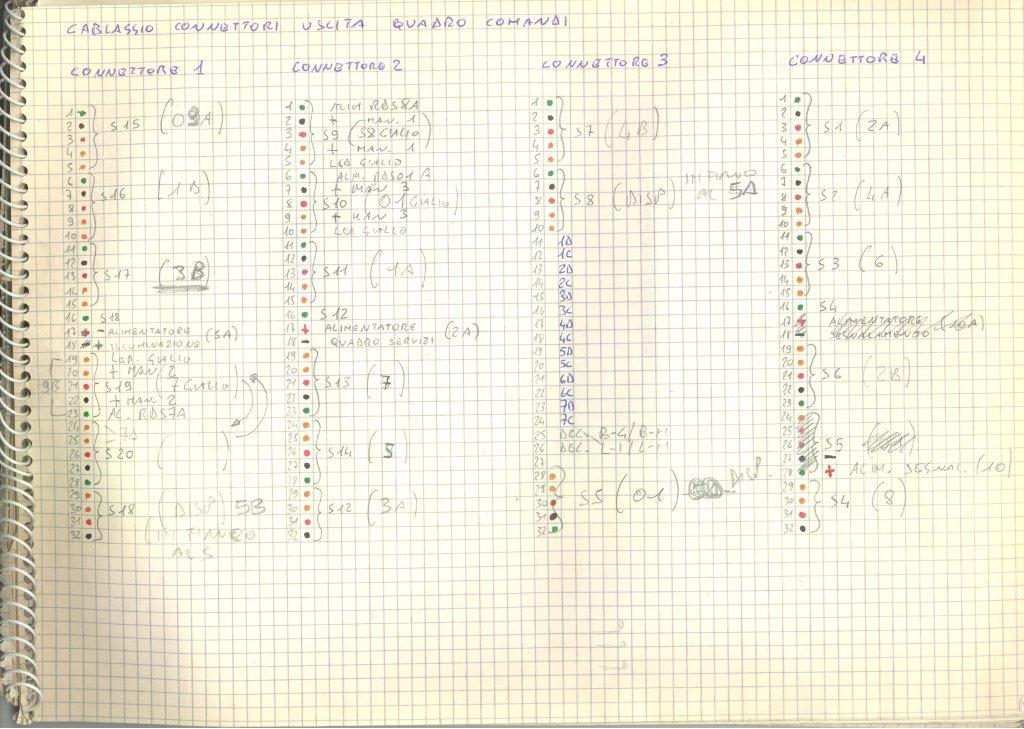 CABLAGGIO CONNETTORI USCITA QUADRO COMANDI
CONNETTORE 1
1
2 S15 (09A)
3
4
5
6
7 S16 (1B)
8
9
10
11
12
13 S17 (3B)
14
15
16 S18
17 - ALIMENTATORE (3A)
18 + ILLUMINAZIONE
19 LED. GIALLO
20 + MAN 2
21 S19 (7 GIALLO)
22 + MAN 2
23 AL. RDS7A
9B
24
25 7A
26 S20 ( )
27
28
29
30 S18 (DISP) 5B
31
32 IN FIANCO
AL 5
CONNETTORE 2
1 ALIM RDS8A
2 + MAN. 1
3 S9 (S8 GIALLO)
4 + MAN. 1
5 LED GIALLO
6 ALM. RDS01A
7 + MAN 3
8 S10 (01 GIALLO)
9 + MAN 3
10 LED GIALLO
11
12
13 S11 (1A)
14
15
16 S12
17 + ALIMENTATORE (2A)
18 - QUADRO SERVIZI
19
20
21 S13 (7)
22
23
24
25
26 S14 (5)
27
28
29
30 S12 (3A)
31
32
CONNETTORE 3
1
2
3 S7 (4B)
4
5
6
7 IN FIANCO
8 S8 (DISP) AL 5A
9
10
11 1D
12 1C
13 2D
14 2C
15 3D
16 3C
17 4D
18 4C
19 5D
20 5C
21 6D
22 6C
23 7D
24 7C
25 DEC. B-G/B-H
26 DEC. L-I/L-H
27
28
29 S5 (01) DISP.
30
31
32
CONNETTORE 4
1
2
3 S1 (2A)
4
5
6
7
8 S2 (4A)
9
10
11
12
13 S3 (6)
14
15
16 S4
17 + ALIMENTATORE
18 - SEGNALAMENTO (10A)
19
20
21 S6 (2B)
22
23
24
25
26 S5
27 -
28 + ALIM. SEGNAL. (10)
29
30 S4 (8)
31
32